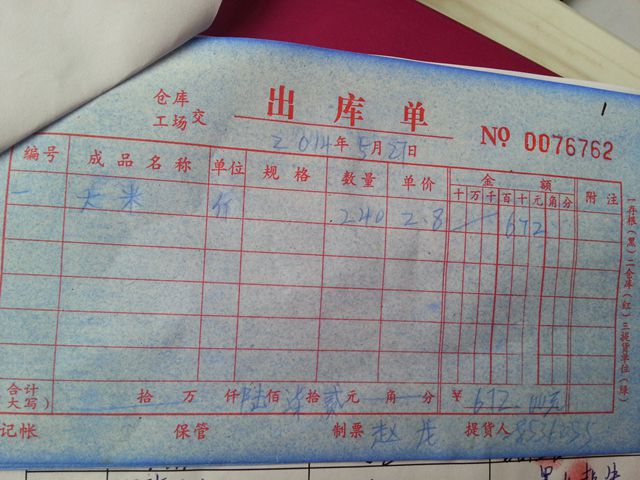 仓库
工场 交
出库单
1
Nº 0076762
2014年5月27日
编号 成品名称 单位 规格 数量 单价 金额 附注
十万千百十元角分
一 大米 斤 240 2.8 672
合计(大写) 拾 万 仟 陆佰 柒拾 贰元 角 分 ¥ 672.00元
记帐 保管 制票 赵 提货人
一存根(黑)二仓库(红)三提货单位(绿)